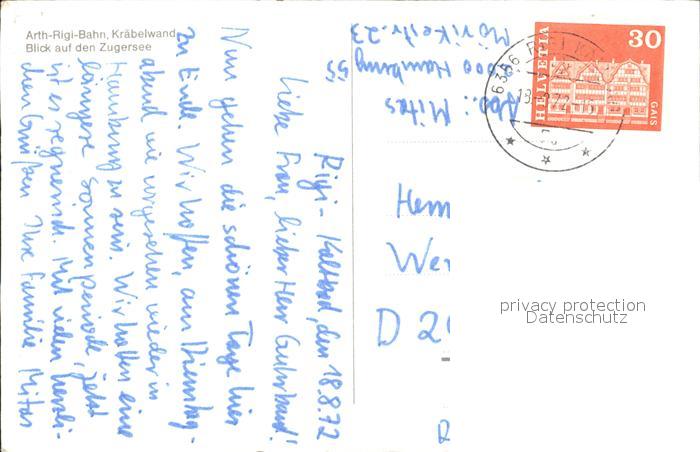 Arth-Rigi-Bahn, Kräbelwand
Blick auf den Zugersee
Rigi-Kaltbad, den 18.8.72
Liebe Frau, lieber Herr
Nun gehen die schönen Tage hier
zu Ende. Wir hoffen, am Dienstag-
abend wie vorgesehen wieder in
Hamburg zu sein. Wir hatten eine
längere Sonnenperiode, jetzt
ist es regnerisch. Mit vielen herzli-
chen Grüßen Ihre Familie Mitas
Abs.: Mitas
2000 Hamburg 55
Mörikestr. 23
HELVETIA
30
GAIS
6356 RIGI KA
18
72
D 2
privacy protection
Datenschutz